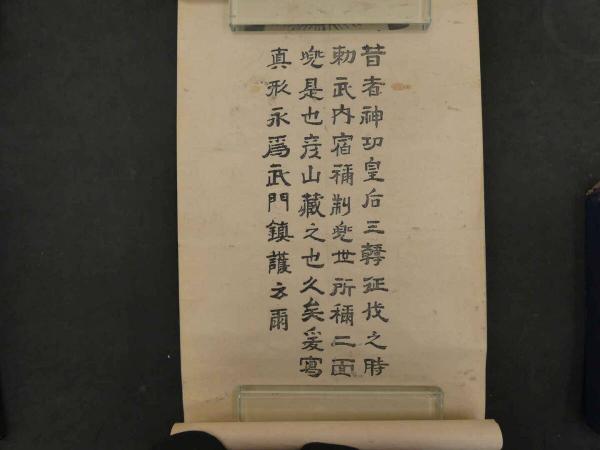 昔者神功皇后三韓征伐之時
勅武内宿禰制兜世所稱二面
兜是也彦山藏之也久矣爰寫
真形永爲武門鎮護云爾